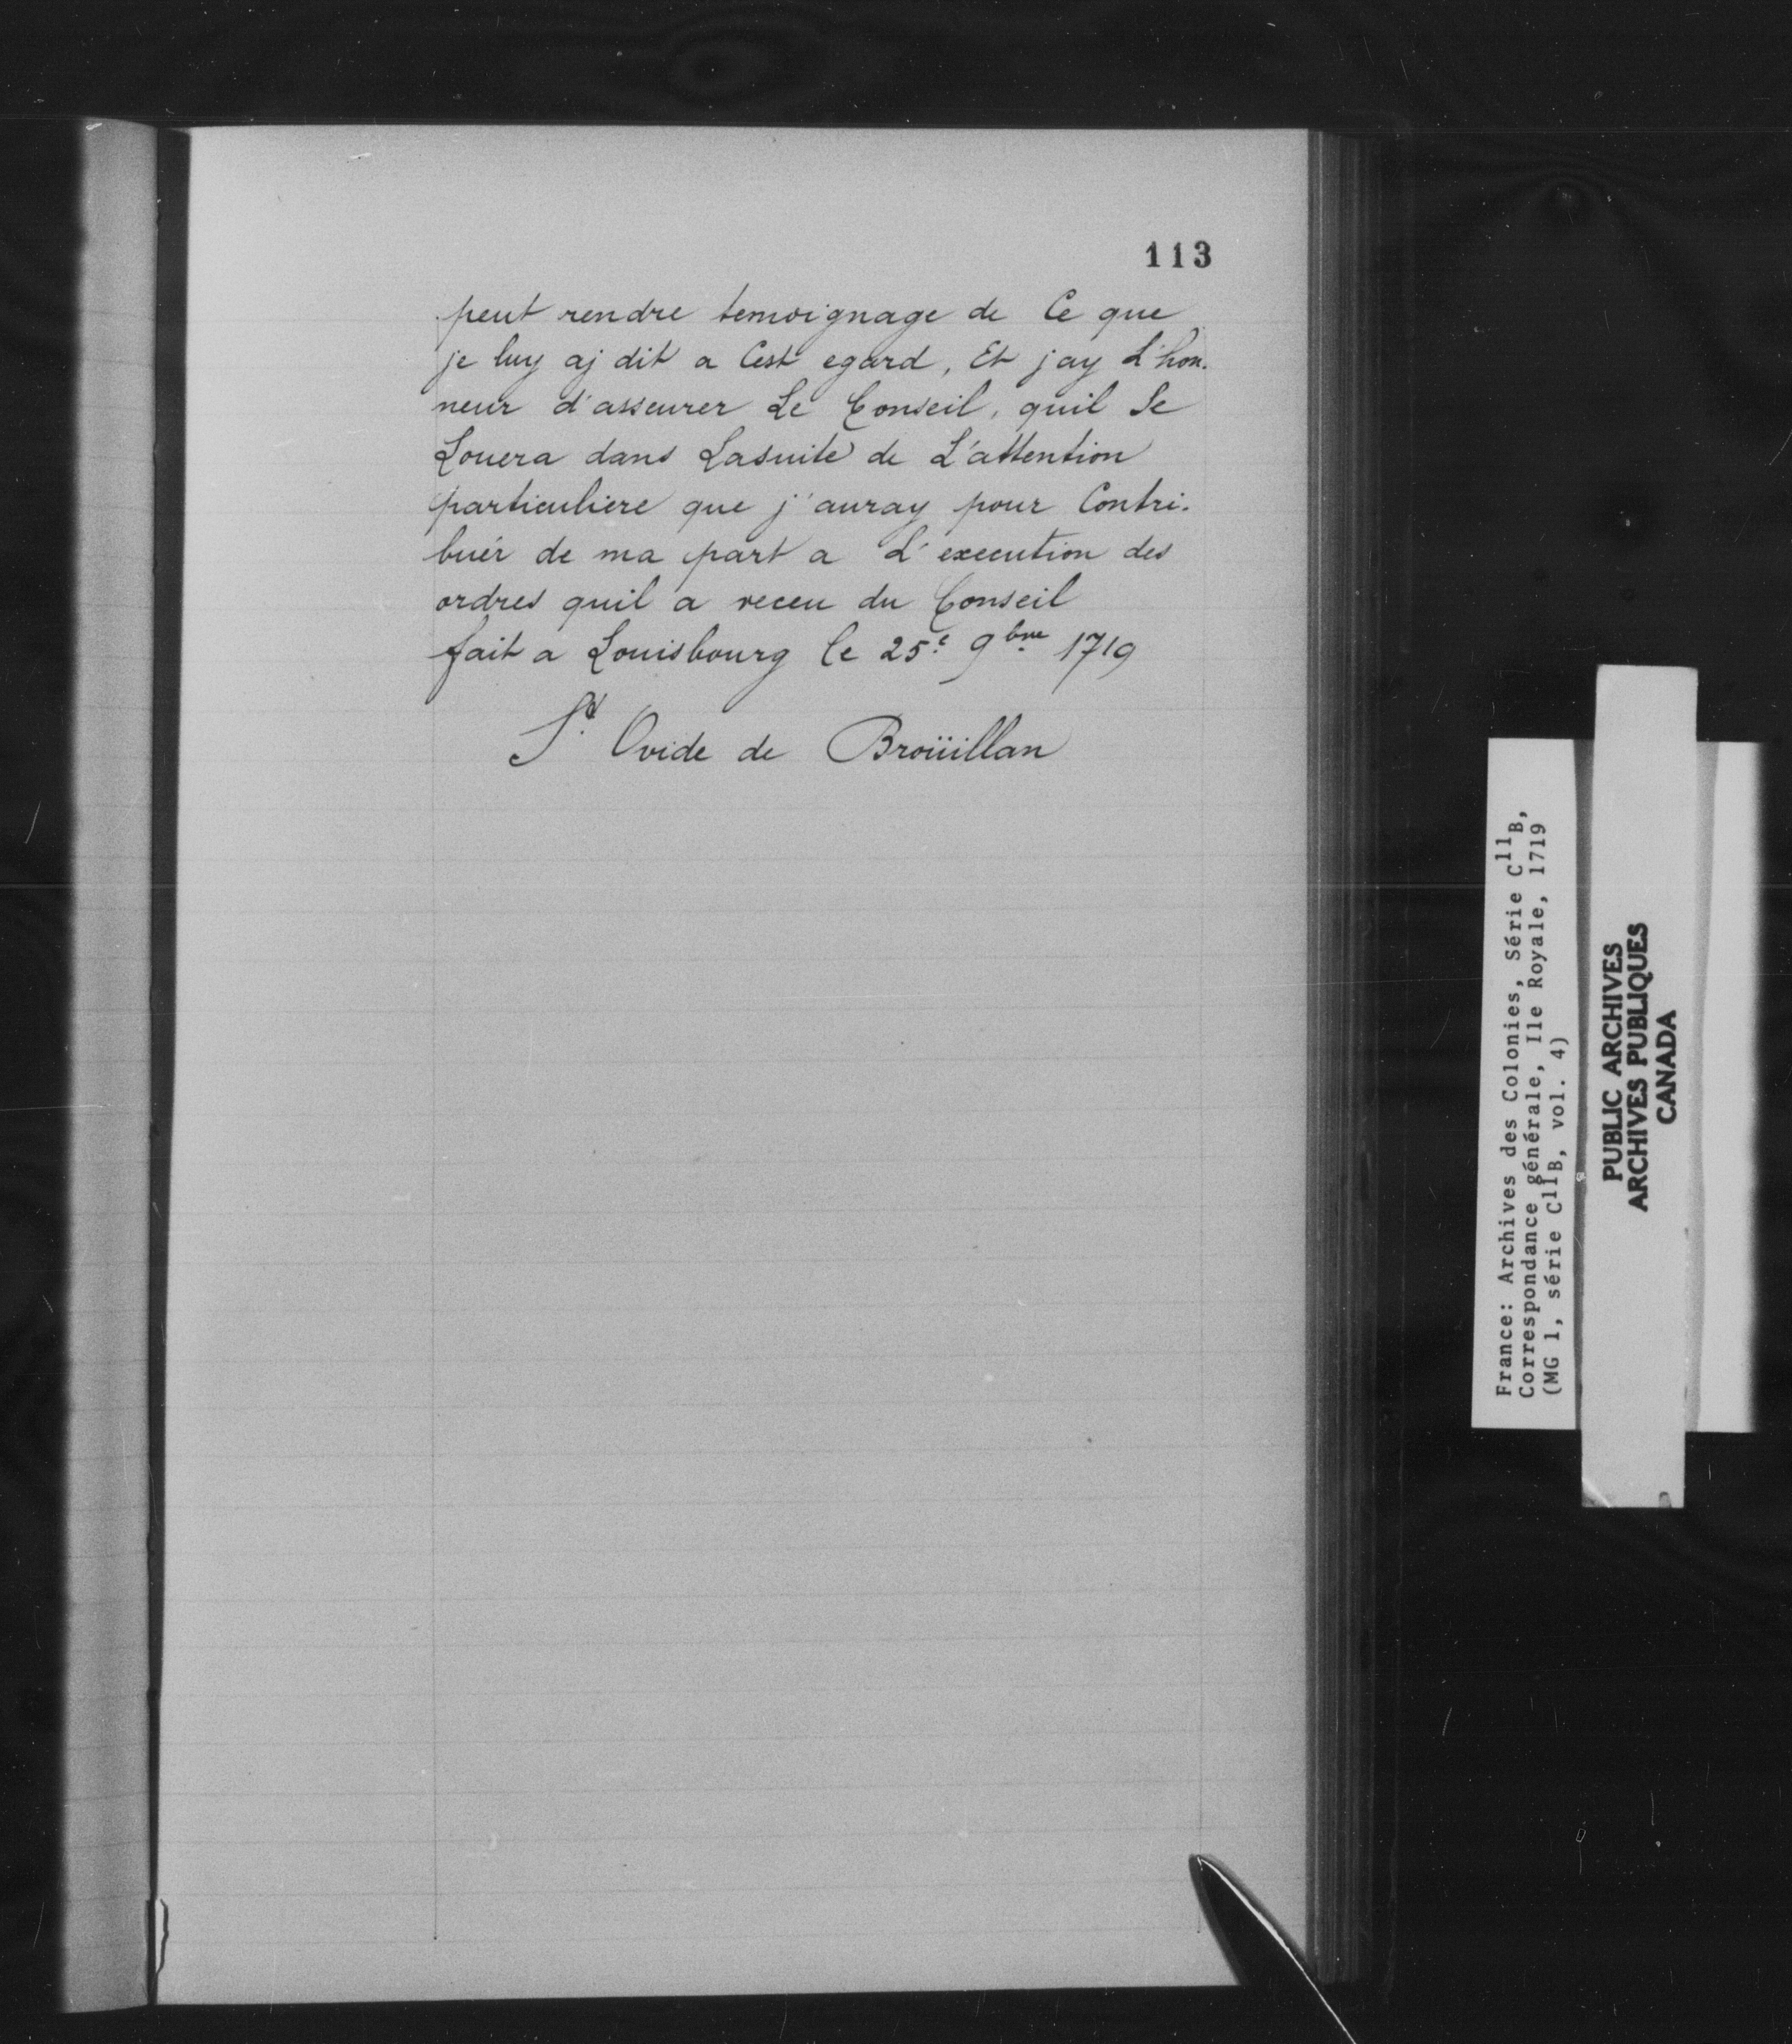 113
peut rendre temoignage de Ce que
je luy aj dit a Cest egard, Et jay L'hon.
neur d'asseurer Le Conseil, quil Se
Louera dans Lasuite de L'attention
particuliere que j'auray pour Contri.
buér de ma part a L'execution des
ordres quil a receu du Conseil
fait a Louisbourg le 25.e 9bre 1719
St. Ovide de Broüillan
France: Archives des Colonies, Série C11B,
Correspondance générale, Ile Royale, 1719
(MG 1, série C11B, vol. 4)
PUBLIC ARCHIVES
ARCHIVES PUBLIQUES
CANADA